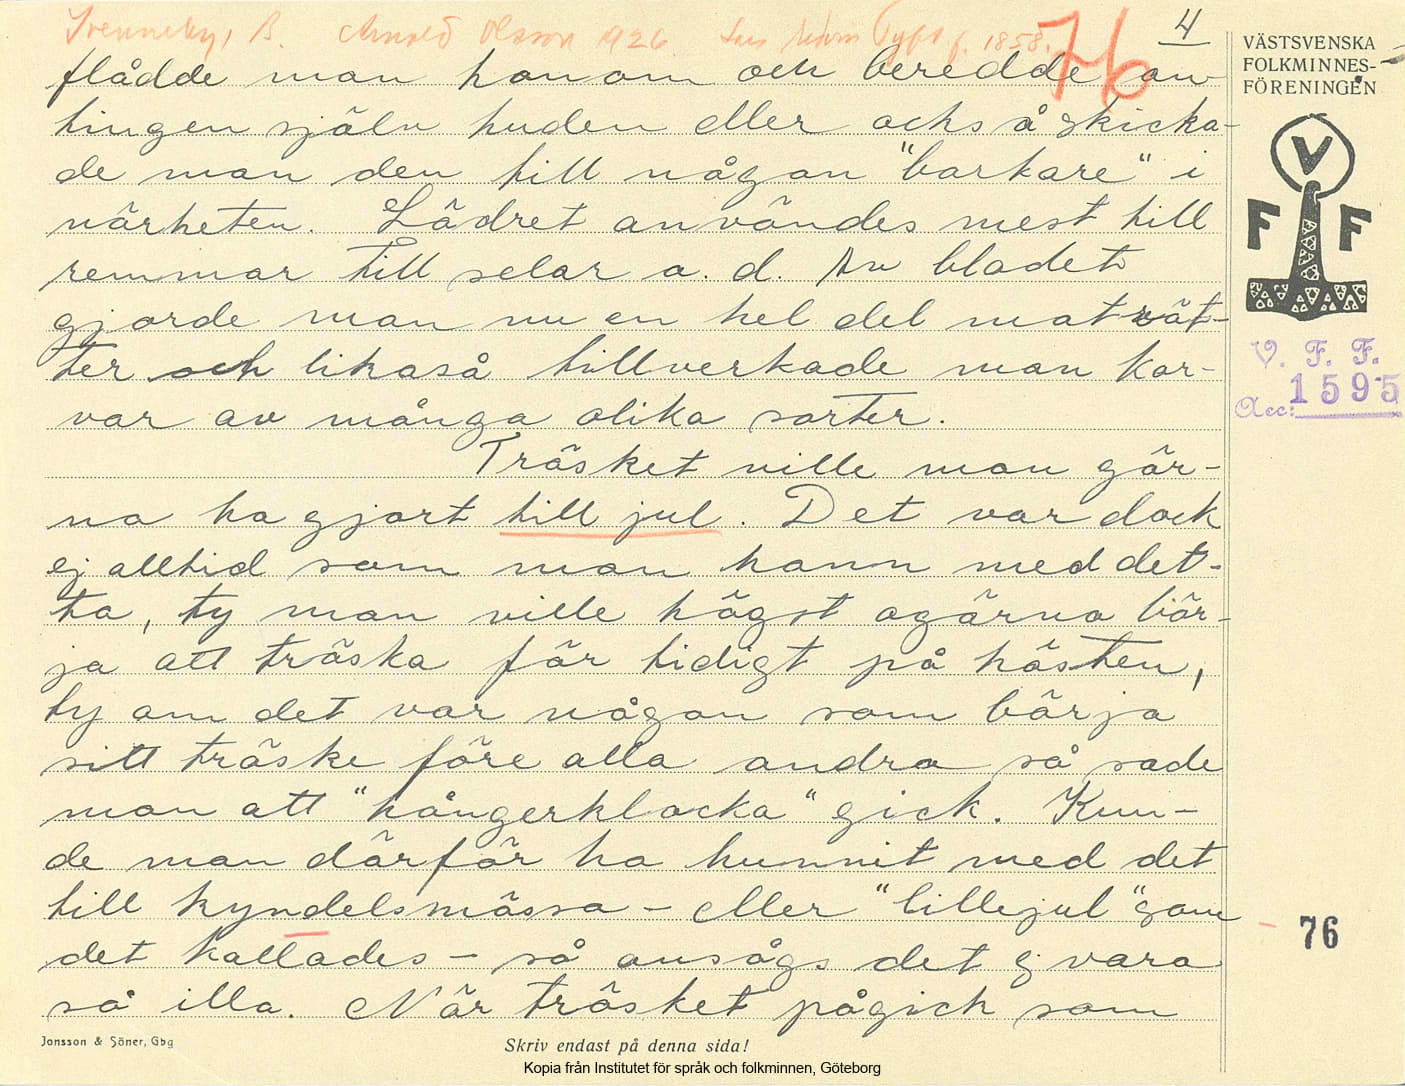 Svenneby, B. Arnold Olsson 1926. f. 1858.
76
4
flådde man honom och beredde an-
tingen själv huden eller också skicka-
de man den till någon "barkare" i
närheten. Lädret användes mest till
remmar till selar o. d. Av blodet
gjorde man nu en hel del maträt-
ter och likaså tillverkade man kor-
var av många olika sorter.
Träsket ville man gär-
na ha gjort till jul. Det var dock
ej alltid som man hann med det-
ta, ty man ville högst ogärna bör-
ja att tröska för tidigt på hösten,
ty om det var någon som börja
sitt tröske före alla andra så sade
man att "hångerklocka" gick. Kun-
de man därför ha hunnit med det
till kyndelsmässa - eller "lillejul" som
det kallades - så ansågs det ej vara
så illa. När trösket pågick som
VÄSTSVENSKA
FOLKMINNES-
FÖRENINGEN
V
F F
V. F. F.
Acc: 1595
76
Jonsson & Söner, Gbg
Skriv endast på denna sida!
Kopia från Institutet för språk och folkminnen, Göteborg